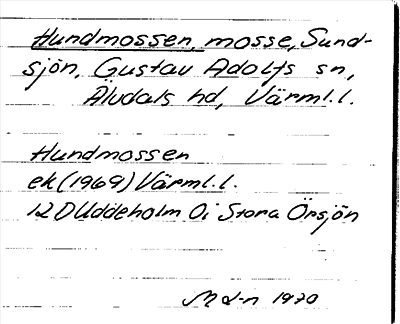 Hundmossen, mosse, Sund-
sjön, Gustav Adolfs sn,
Älvdals hd, Värml. l.
Hundmossen
ek (1969) Värml. l.
12D Uddeholm 0i Stora Örsjön
1970